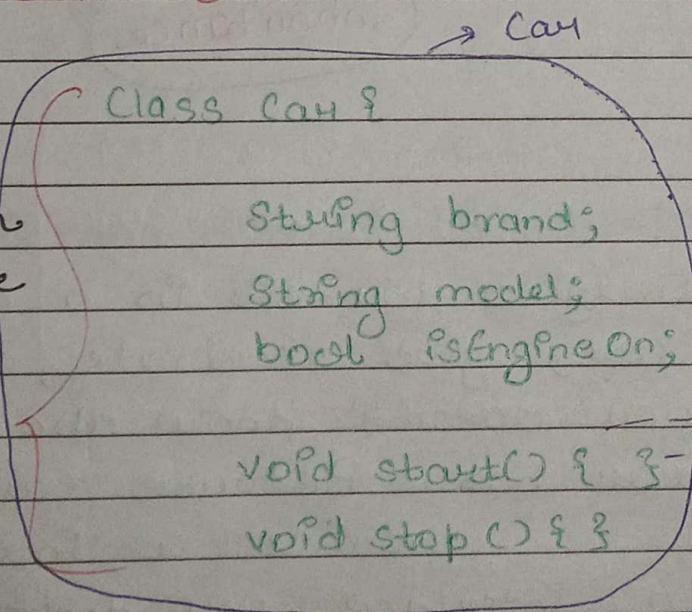 Car
Class Car {
String brand;
String model;
bool isEngineOn;
void start() { }
void stop () { }